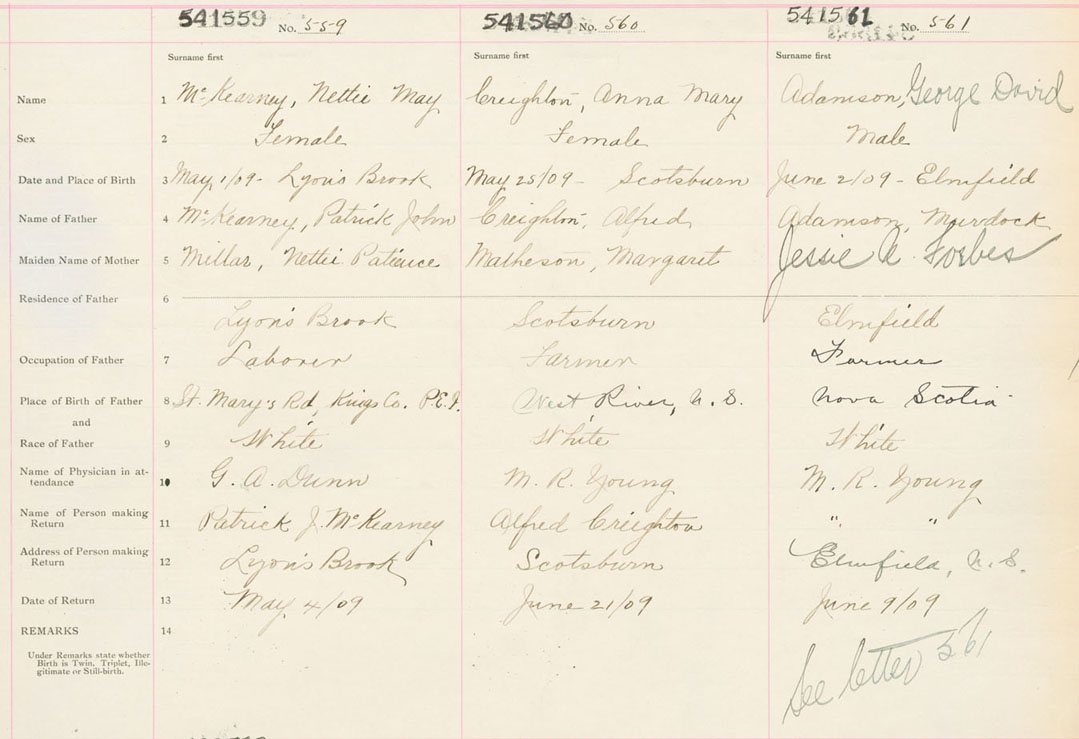 541559 No. 559 541560 No. 560 541561 No. 561
Surname first Surname first Surname first
Name 1 McKearney, Nettie May Creighton, Anna Mary Adamson, George David
Sex 2 Female Female Male
Date and Place of Birth 3 May 1/09 - Lyon's Brook May 25/09 - Scotsburn June 2/09 - Elmfield
Name of Father 4 McKearney, Patrick John Creighton, Alfred Adamson, Murdock
Maiden Name of Mother 5 Millar, Nettie Patience Matheson, Margaret Jessie A. Forbes
Residence of Father 6
Lyon's Brook Scotsburn Elmfield
Occupation of Father 7 Laborer Farmer Farmer
Place of Birth of Father 8 St. Mary's Rd, Kings Co. P.E.I. West River, N. S. Nova Scotia
and
Race of Father 9 White White White
Name of Physician in at-
tendance 10 G. A. Dunn M. R. Young M. R. Young
Name of Person making
Return 11 Patrick J. McKearney Alfred Creighton " "
Address of Person making
Return 12 Lyon's Brook Scotsburn Elmfield, N. S.
Date of Return 13 May 4/09 June 21/09 June 9/09
REMARKS 14
Under Remarks state whether
Birth is Twin, Triplet, Ille-
gitimate or Still-birth.
See letter 561